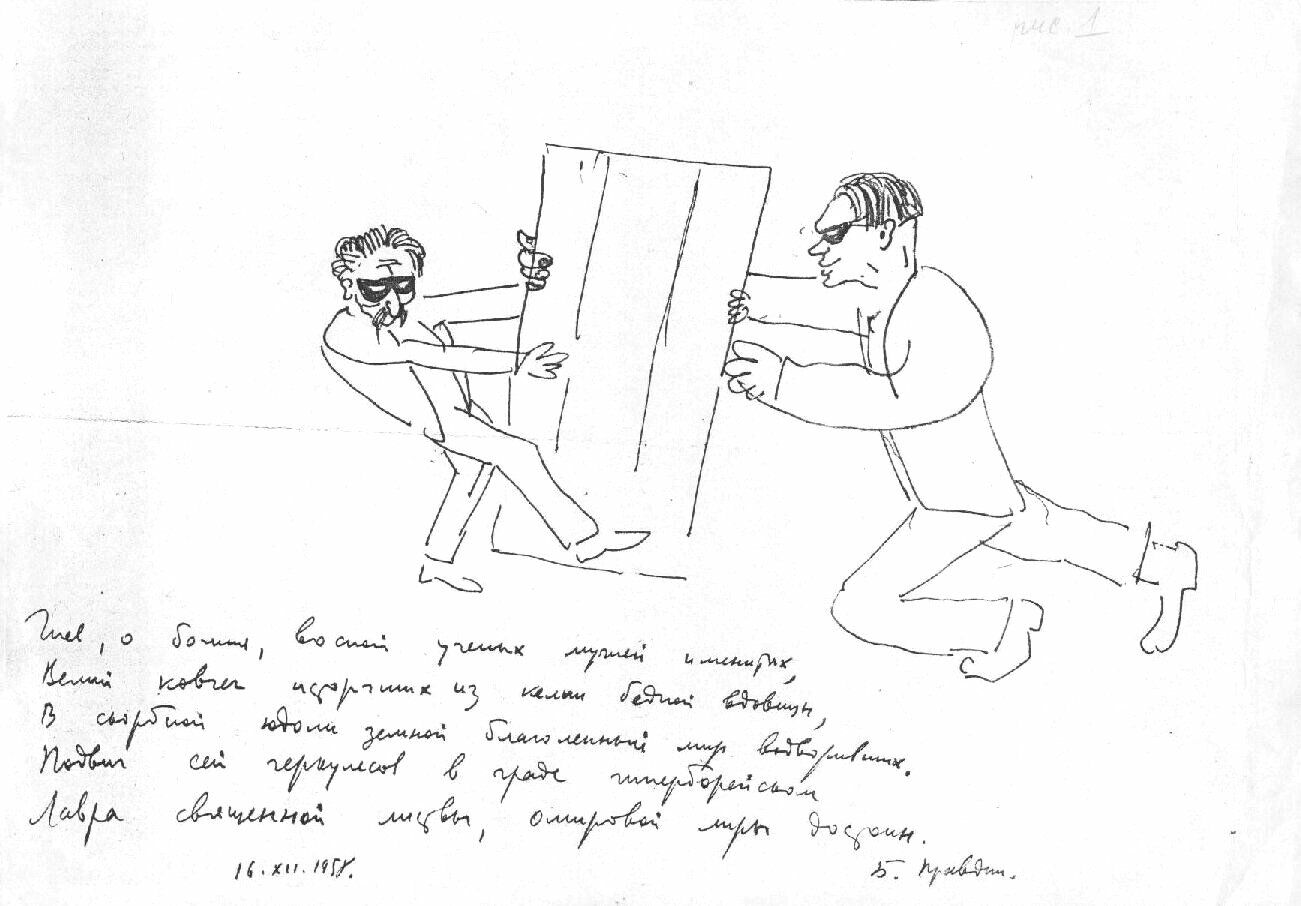 рис. 1
Гнев, о богиня, воспой ученых мужей именитых,
Велий ковчег исторгших из кельи бедной вдовицы,
В скорбной юдоли земной благолепный мир водворивших.
Подвиг сей геркулесов в граде гиперборейском
Лавра священной листвы, омировой лиры достоин.
16.XII.1958.
Б. Правдин.